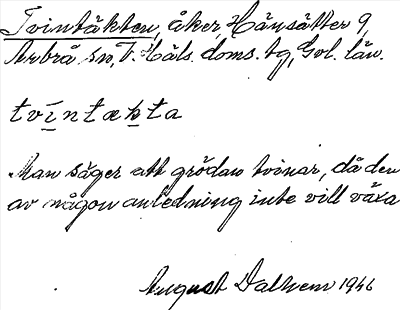 Tvintäkten, åker, Hänsätter 9,
Arbrå sn, V. Häls. doms. tg, Gvl. län.
tvintækta
Man säger att grödan tvinar, då den
av någon anledning inte vill växa
August Dalhem 1946